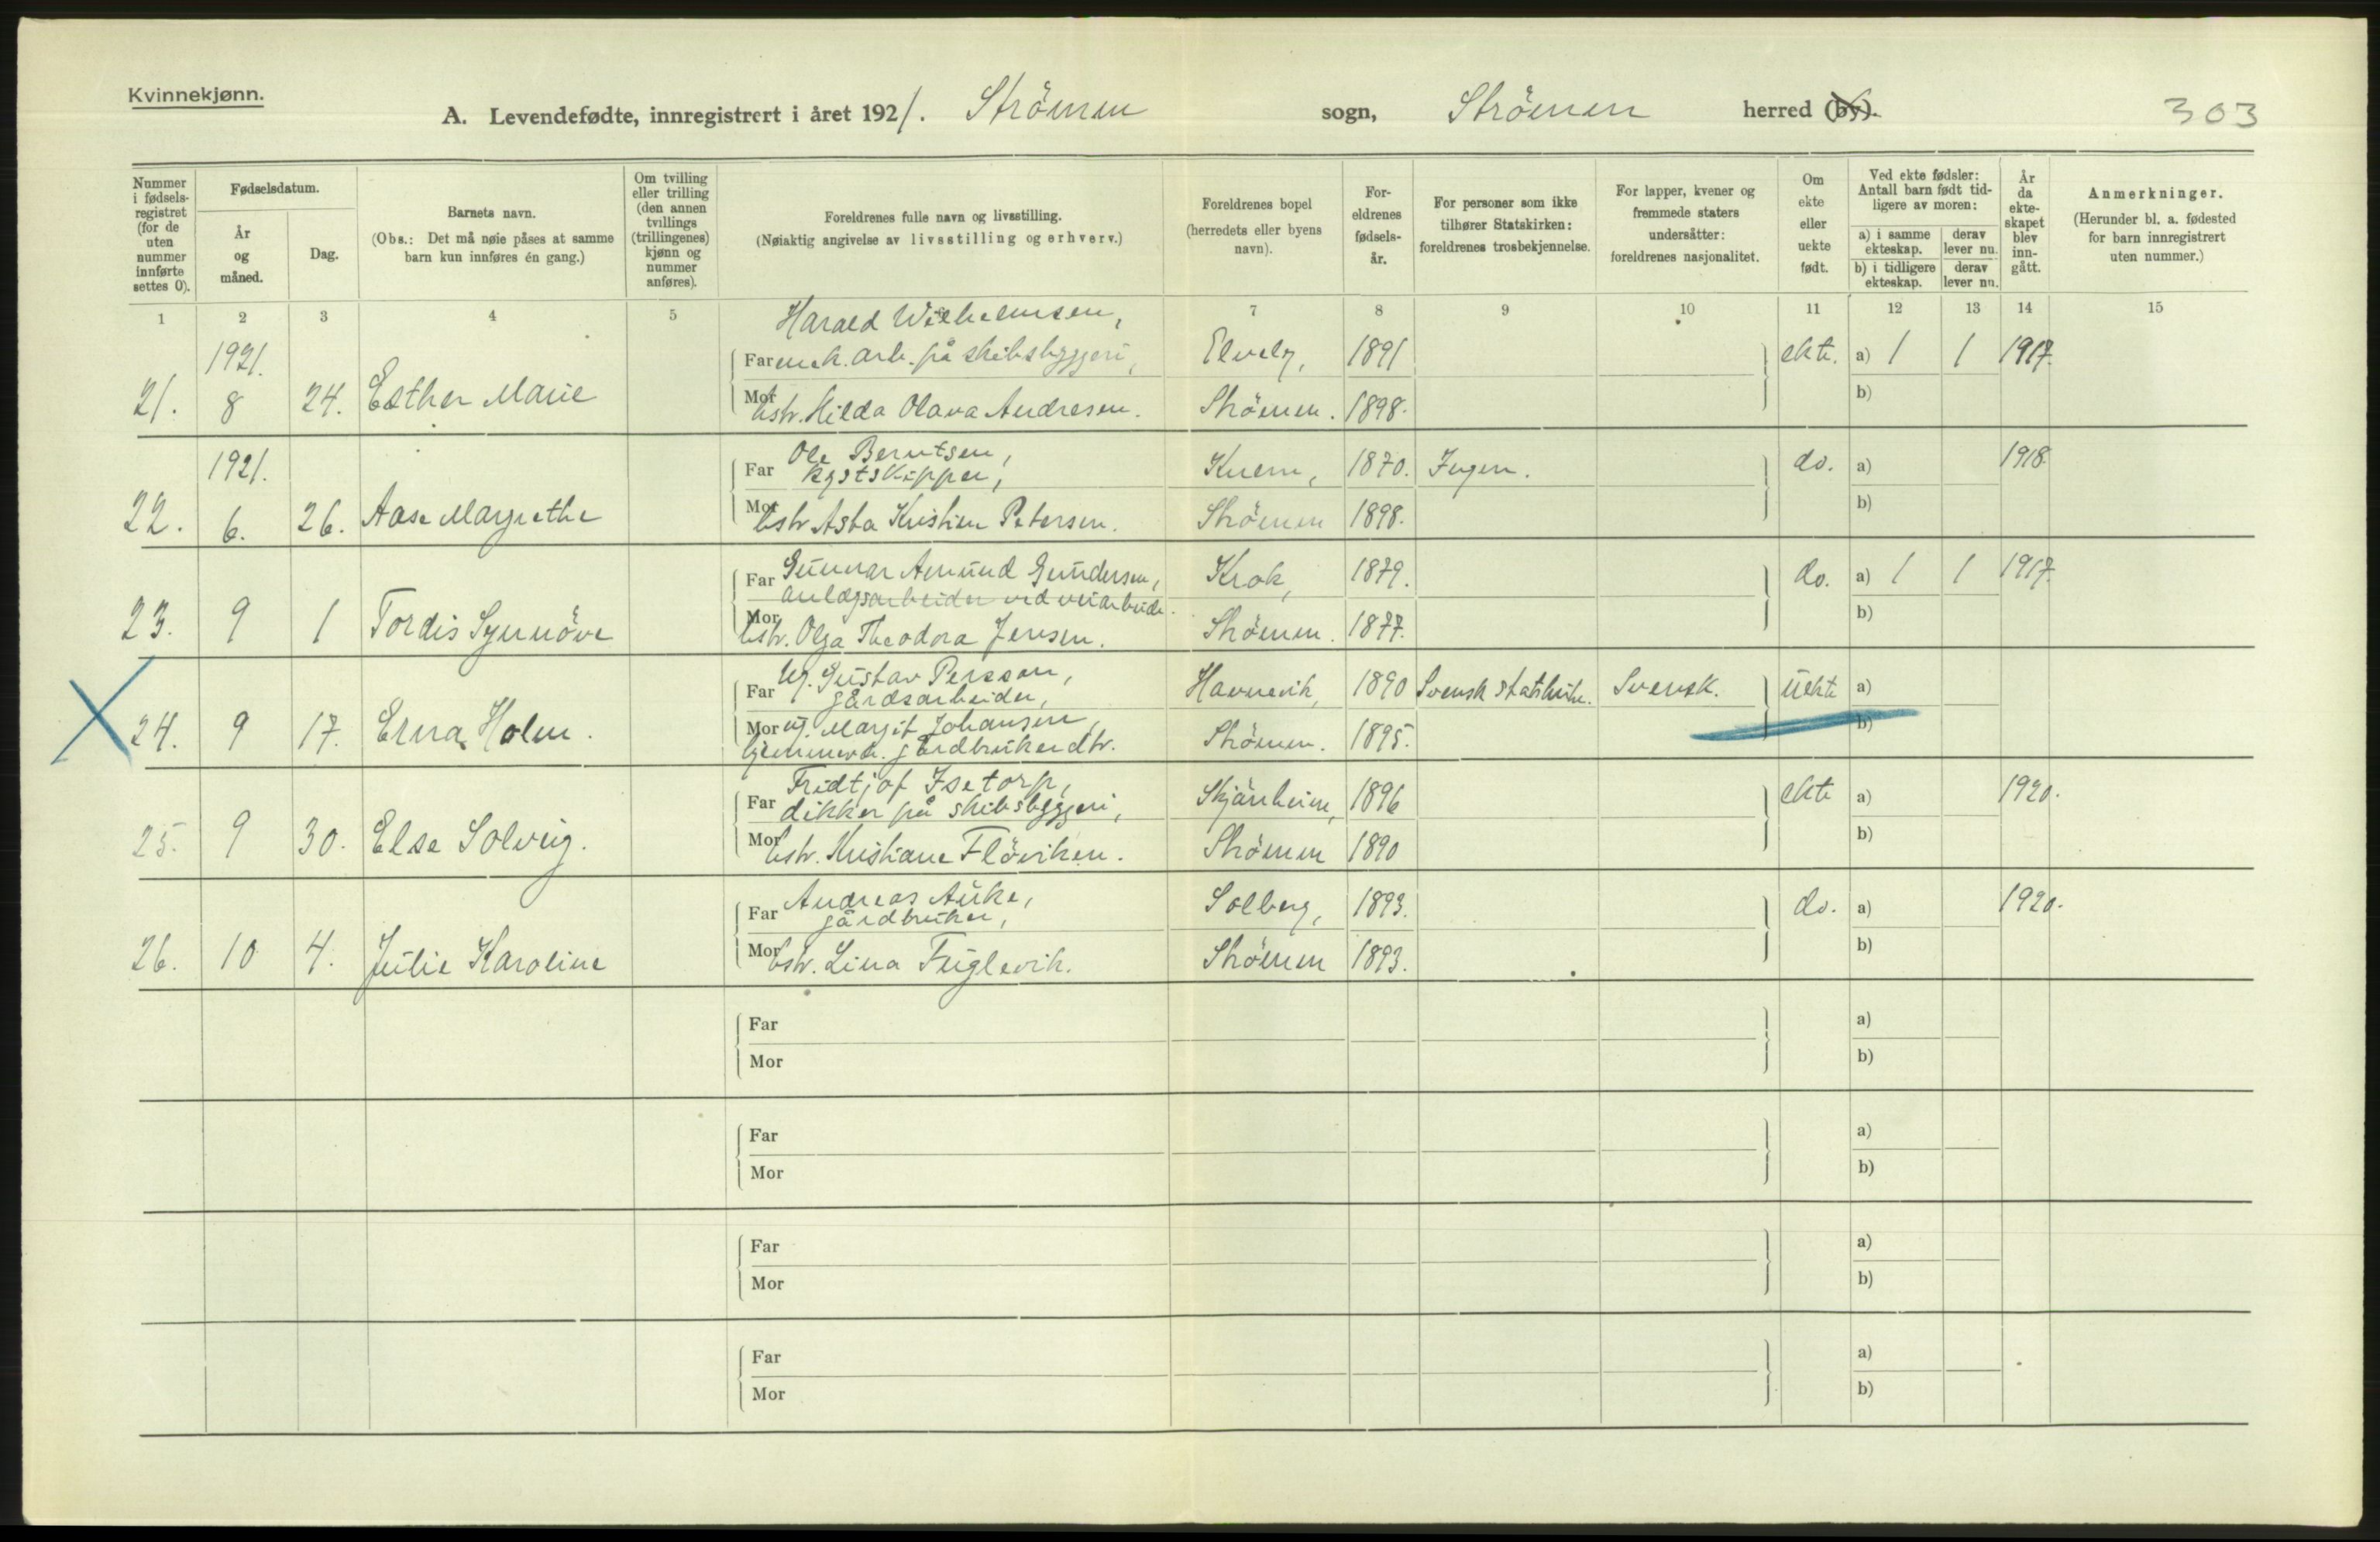 Kvinnekjønn.
A. Levendefødte, innregistrert i året 1921. Strömm sogn, Strömm herred (by). 303
Nummer i fødsels-registret (for de uten nummer innførte settes 0).
Fødselsdatum.
År og måned.
Dag.
Barnets navn.
(Obs.: Det må nøie påses at samme barn kun innføres én gang.)
Om tvilling eller trilling (den annen tvillings (trillingenes) kjønn og nummer anføres).
Foreldrenes fulle navn og livsstilling.
(Nøiaktig angivelse av livsstilling og erhverv.)
Foreldrenes bopel
(herredets eller byens navn).
For-eldrenes fødsels-år.
For personer som ikke tilhører Statskirken: foreldrenes trosbekjennelse.
For lapper, kvener og fremmede staters undersåtter: foreldrenes nasjonalitet.
Om ekte eller uekte født.
Ved ekte fødsler: Antall barn født tid-ligere av moren:
a) i samme ekteskap.
derav lever nu.
b) i tidligere ekteskap.
derav lever nu.
År da ekte-skapet blev inn-gått.
Anmerkninger.
(Herunder bl. a. fødested for barn innregistrert uten nummer.)
1 2 3 4 5 7 8 9 10 11 12 13 14 15
Harald Wilhelmsen,
1921. Far mek. arb. på skibsbyggeri, Elvely, 1891 ekte. a) 1 1 1917.
21. 8 24. Esther Marie Mor hstr. Hilda Olava Andresen. Strömm. 1898. b)
Ole Berntsen,
1921. Far kystskipper, 1870. Ingen. do. a) 1918.
22. 6. 26. Aase Margrethe Mor hstr Asta Kristine Petersen. Strömm 1898. b)
Far Gunnar Amund Gundersen, Krok, 1879. do. a) 1 1 1917.
anlægsarbeider ved veiarbeide.
23. 9 1 Tordis Synnöve Mor hstr. Olga Theodora Jensen. Strömm. 1877. b)
Ug. Gustav Persson,
Far gårdsarbeider, Havnevik, 1890 Svensk statskirke. Svensk. uekte a)
24. 9 17. Erna Holm. Mor ug. Margit Johansen, Strömm. 1895. b)
hjemmev. gårdbrukerdtr.
Fridtjof Isetorp,
Far dikker på skibsbyggeri, Skjærheim, 1896 ekte a) 1920.
25. 9 30. Else Solveig. Mor hstr. Kristiane Flöviken. Strömm 1890 b)
Andreas Auke,
Far gårdbruker, Solberg, 1893. do. a) 1920.
26. 10 4. Julie Karoline Mor hstr. Lina Fuglevik. Strömm 1893. b)
Far a)
Mor b)
Far a)
Mor b)
Far a)
Mor b)
Far a)
Mor b)